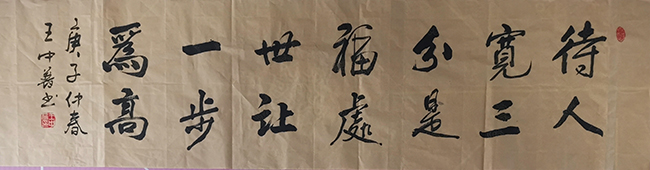 待人
寬三
分是
福處
世让
一步
爲高
庚子仲春
王中善书